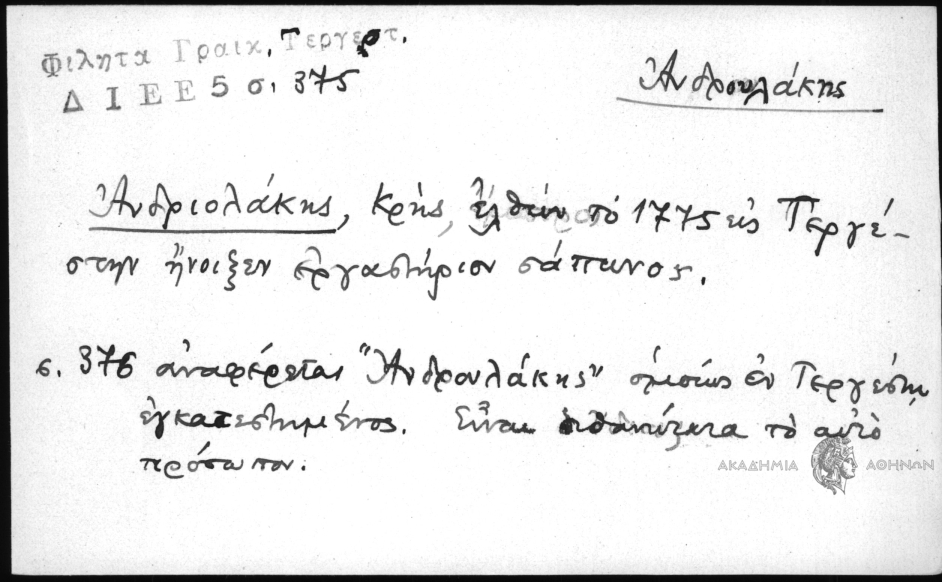 Φιλητα Γραικ. Τεργεστ.
ΔΙΕΕ 5 σ. 375
Ἀνδρουλάκης
Ἀνδριολάκης, Κρής, ἐλθὼν τὸ 1775 εἰς Τεργέ-
στην ἤνοιξεν ἐργαστήριον σάπωνος.
σ. 376 ἀναφέρεται "Ἀνδρουλάκης" ὁμοίως ἐν Τεργέστῃ
ἐγκατεστημένος. Εἶναι πιθανώτατα τὸ αὐτὸ
πρόσωπον.
ΑΚΑΔΗΜΙΑ ΑΘΗΝΩΝ